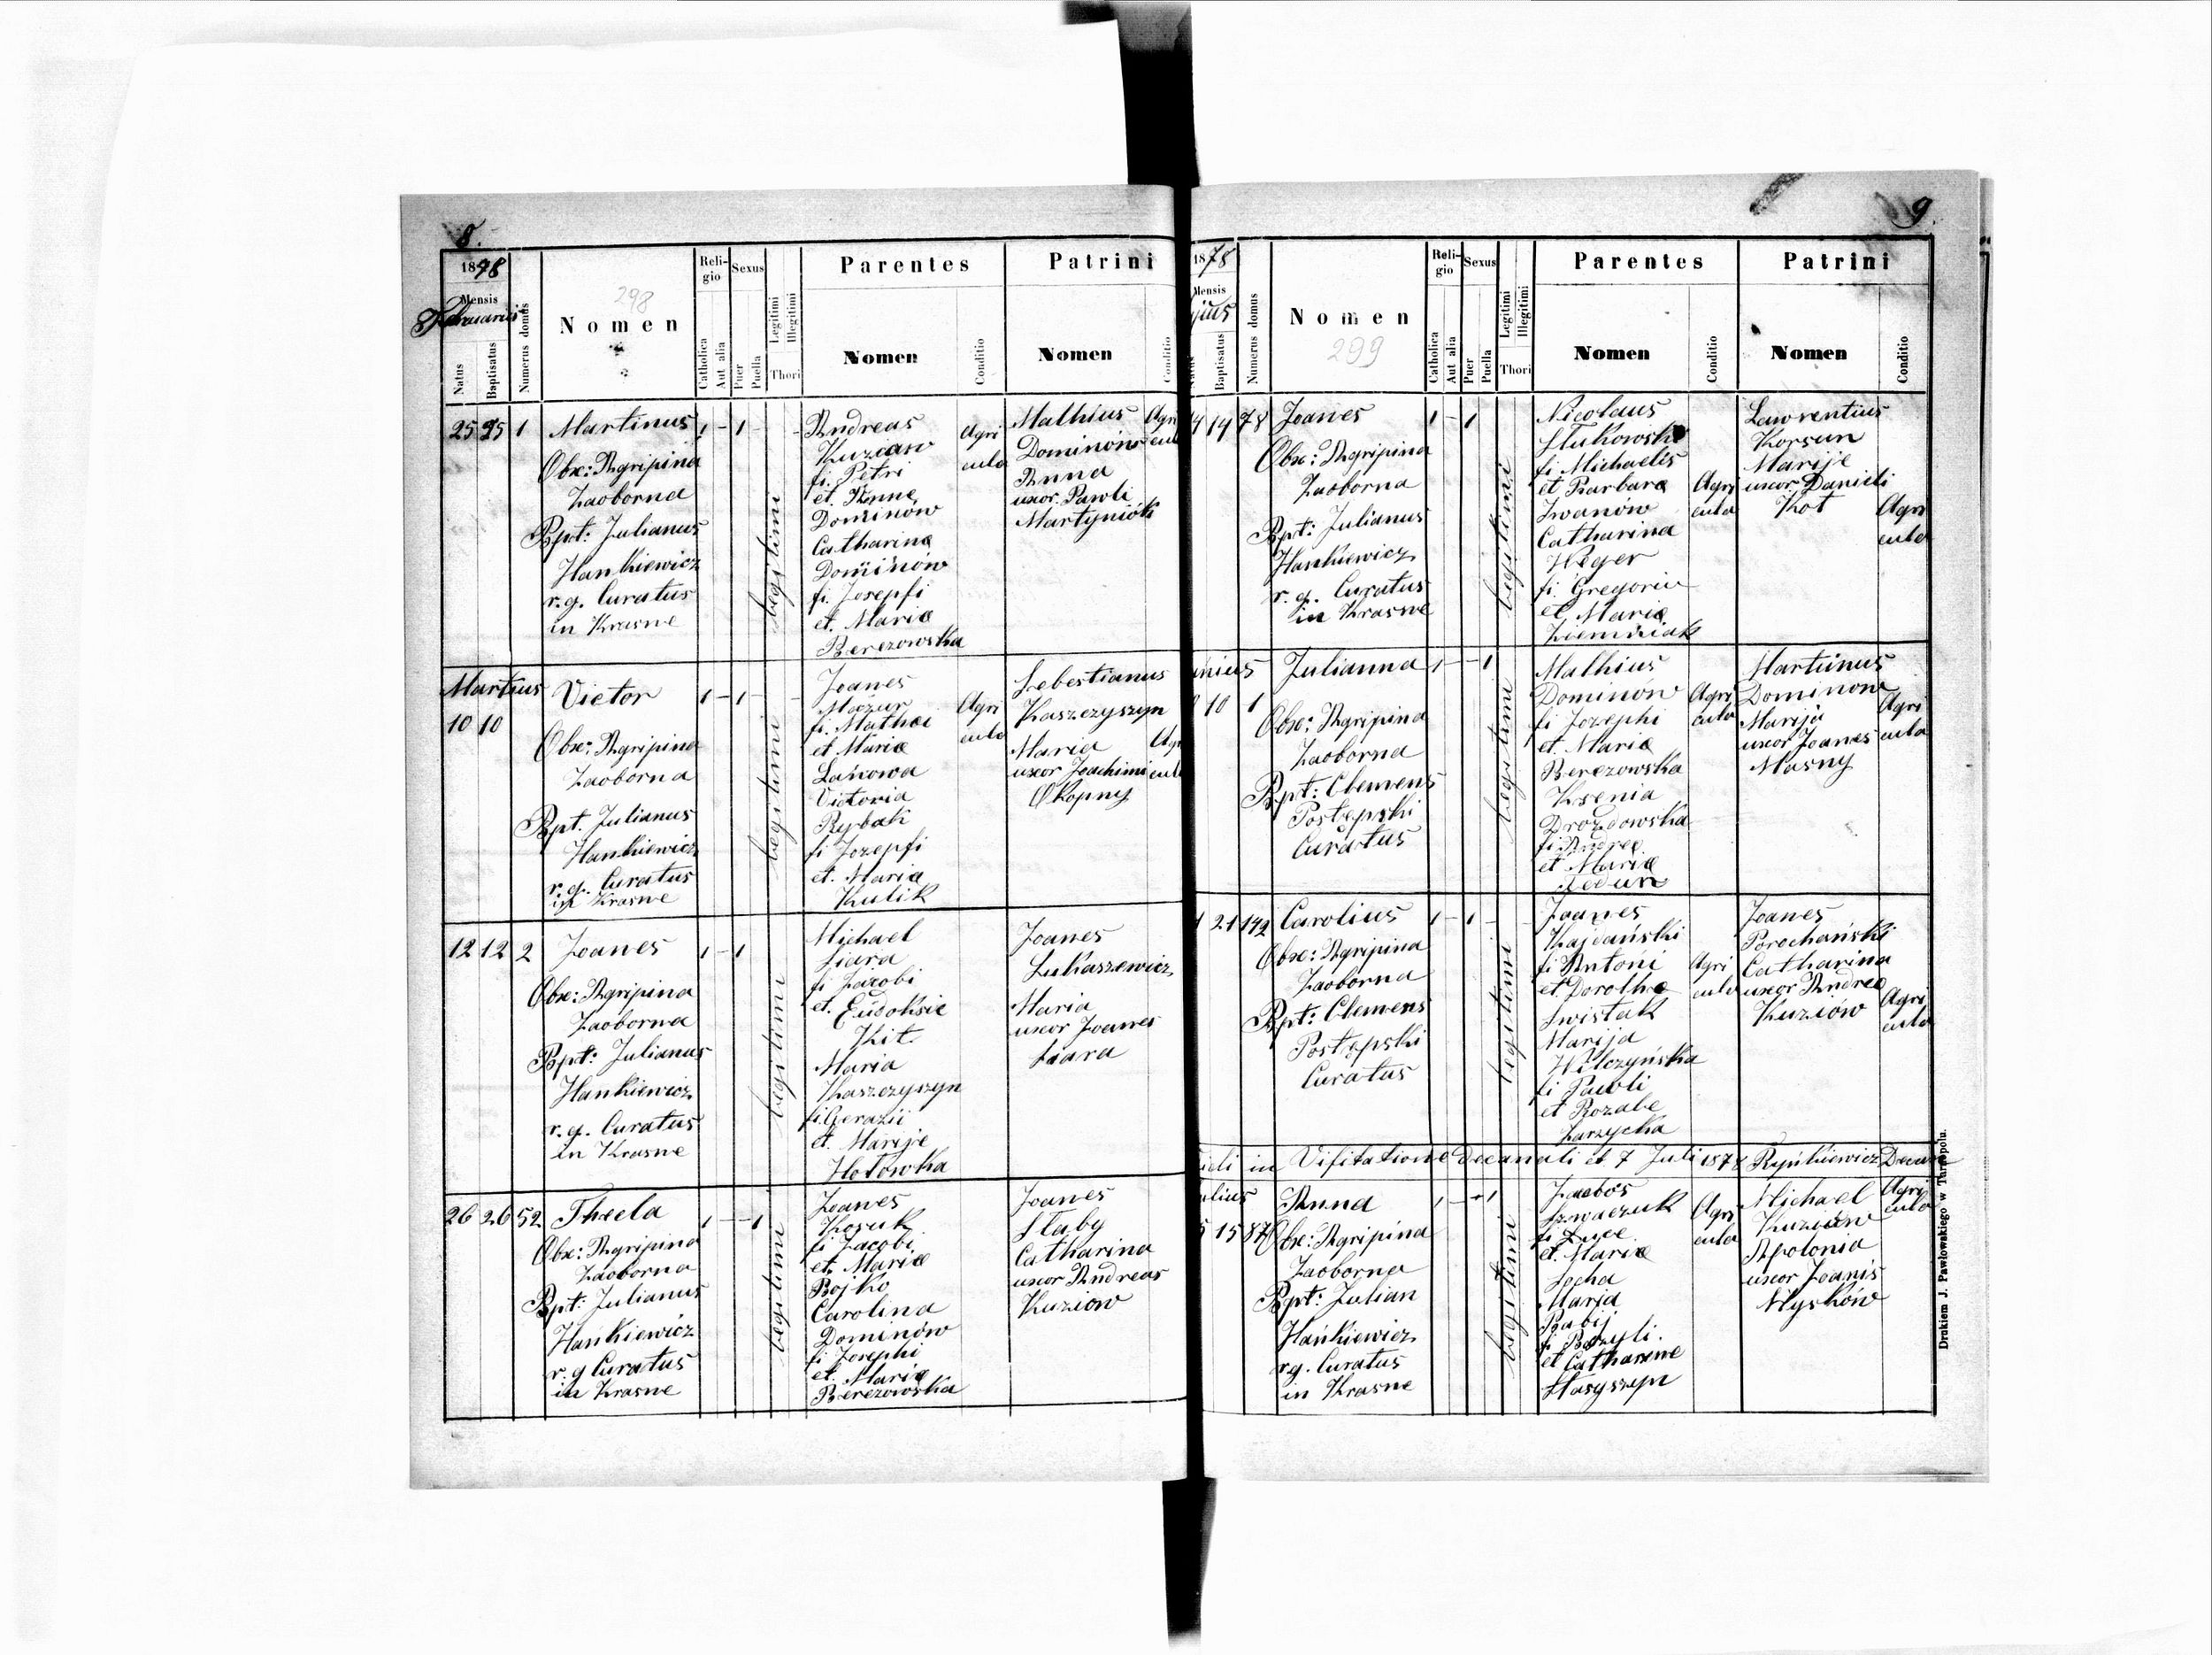 8.
1878
Mensis
Februarius
Natus
Baptisatus
Numerus domus
298
Nomen
Religio
Catholica
Aut alia
Sexus
Puer
Puella
Legitimi
Illegitimi
Thori
Parentes
Nomen
Conditio
Patrini
Nomen
Conditio
25 25 1
Martinus
Obx: Agripina
Zaoborna
Bpt: Julianus
Hankiewicz
r. g. Curatus
in Krasne
1 - 1 -
Legitimi
Andreas
Kuziow
fi. Petri
et Anne
Dominów
Catharina
Dominów
fi. Josepfi
et. Marie
Berezowska
Agri
cula
Mathius
Dominów
Anna
uxor Pawli
Martyniók
Agri
cul
Martius
10 10
Victor
Obx: Agripina
Zaoborna
Bpt. Julianus
Hankiewicz
r. g. Curatus
in Krasne
1 - 1 -
Legitimi
Joanes
Mazur
fi. Mathei
et Marie
Lanowa
Victoria
Rybak
fi Jozepfi
et. Maria
Kulik
Agri
cula
Sebestianus
Kaszczyszyn
Maria
uxor Joachimi
Okopny
Agri
cul
12 12 2
Joanes
Obx: Agripina
Zaoborna
Bpt: Julianus
Hankiewicz
r. g. Curatus
in Krasne
1 - 1
Legitimi
Michael
Siara
fi Jacobi
et. Eudoksie
Kit
Maria
Kaszczyszyn
fi. Gerazii
et. Marije
Hotowka
Joanes
Lukaszewicz
Maria
uxor Joanes
Siara
26 26 52
Thecla
Obx: Agripina
Zaoborna
Bpt: Julianus
Hankiewicz
r. g Curatus
in Krasne
1 - - 1
Legitimi
Joanes
fi Jacobi
et. Marie
Bojko
Carolina
Dominów
fi Josephi
et. Marie
Berezowska
Joanes
Słaby
Catharina
uxor Andreas
Kuziow
9.
1878
Mensis
jus
Natus
Baptisatus
Numerus domus
Nomen
299
Religio
Catholica
Aut alia
Sexus
Puer
Puella
Legitimi
Illegitimi
Thori
Parentes
Nomen
Conditio
Patrini
Nomen
Conditio
14 78
Joanes
Obx: Agripina
Zaoborna
Bpt: Julianus
Hankiewicz
r. g. Curatus
in Krasne
1 - 1
Legitimi
Nicolaus
Stukowski
fi Michaelis
et Barbara
Iwanów
Catharina
Heger
fi. Gregorii
et Marie
Ziemniak
Agri
cula
Lawrentius
Korsun
Marije
uxor Danieli
Kot
Agri
cula
nius
10 1
Julianna
Obx: Agripina
Zaoborna
Bpt: Clemens
Postępski
Curatus
1 - - 1
Legitimi
Mathius
Dominów
fi Jozephi
et. Marie
Berezowska
Ksenia
Drozdowska
fi Andree
et Marie
Fedun
Agri
cula
Martinus
Dominow
Marija
uxor Joanes
Masny
Agri
cula
21 142
Carolius
Obx: Agripina
Zaoborna
Bpt: Clemens
Postępski
Curatus
1 - 1 -
Legitimi
Joanes
Kajdański
fi Antoni
et Dorothe
Swistak
Marija
Wilczyńska
fi Pawli
et Rozalie
Zarzycka
Agri
cula
Joanes
Porochański
Catharina
uxor Andree
Kuziów
Agri
cula
in Visitatione Decanali et 7 Juli 1878 Rynkiewicz
lius
15 87
Anna
Obx: Agripina
Zaoborna
Bpt: Julian
Hankiewicz
r. g. Curatus
in Krasne
1 - - 1
Legitimi
Jacobs
Szwaczuk
fi Luce
et. Marie
Socha
Maria
Babij
fi Bazyli.
et Catharine
Hasyszyn
Agri
cula
Michael
Kuziów
Apolonia
uxor Joanis
Myskow
Agri
cula
Drukiem J. Pawłowskiego w Tarnopolu.